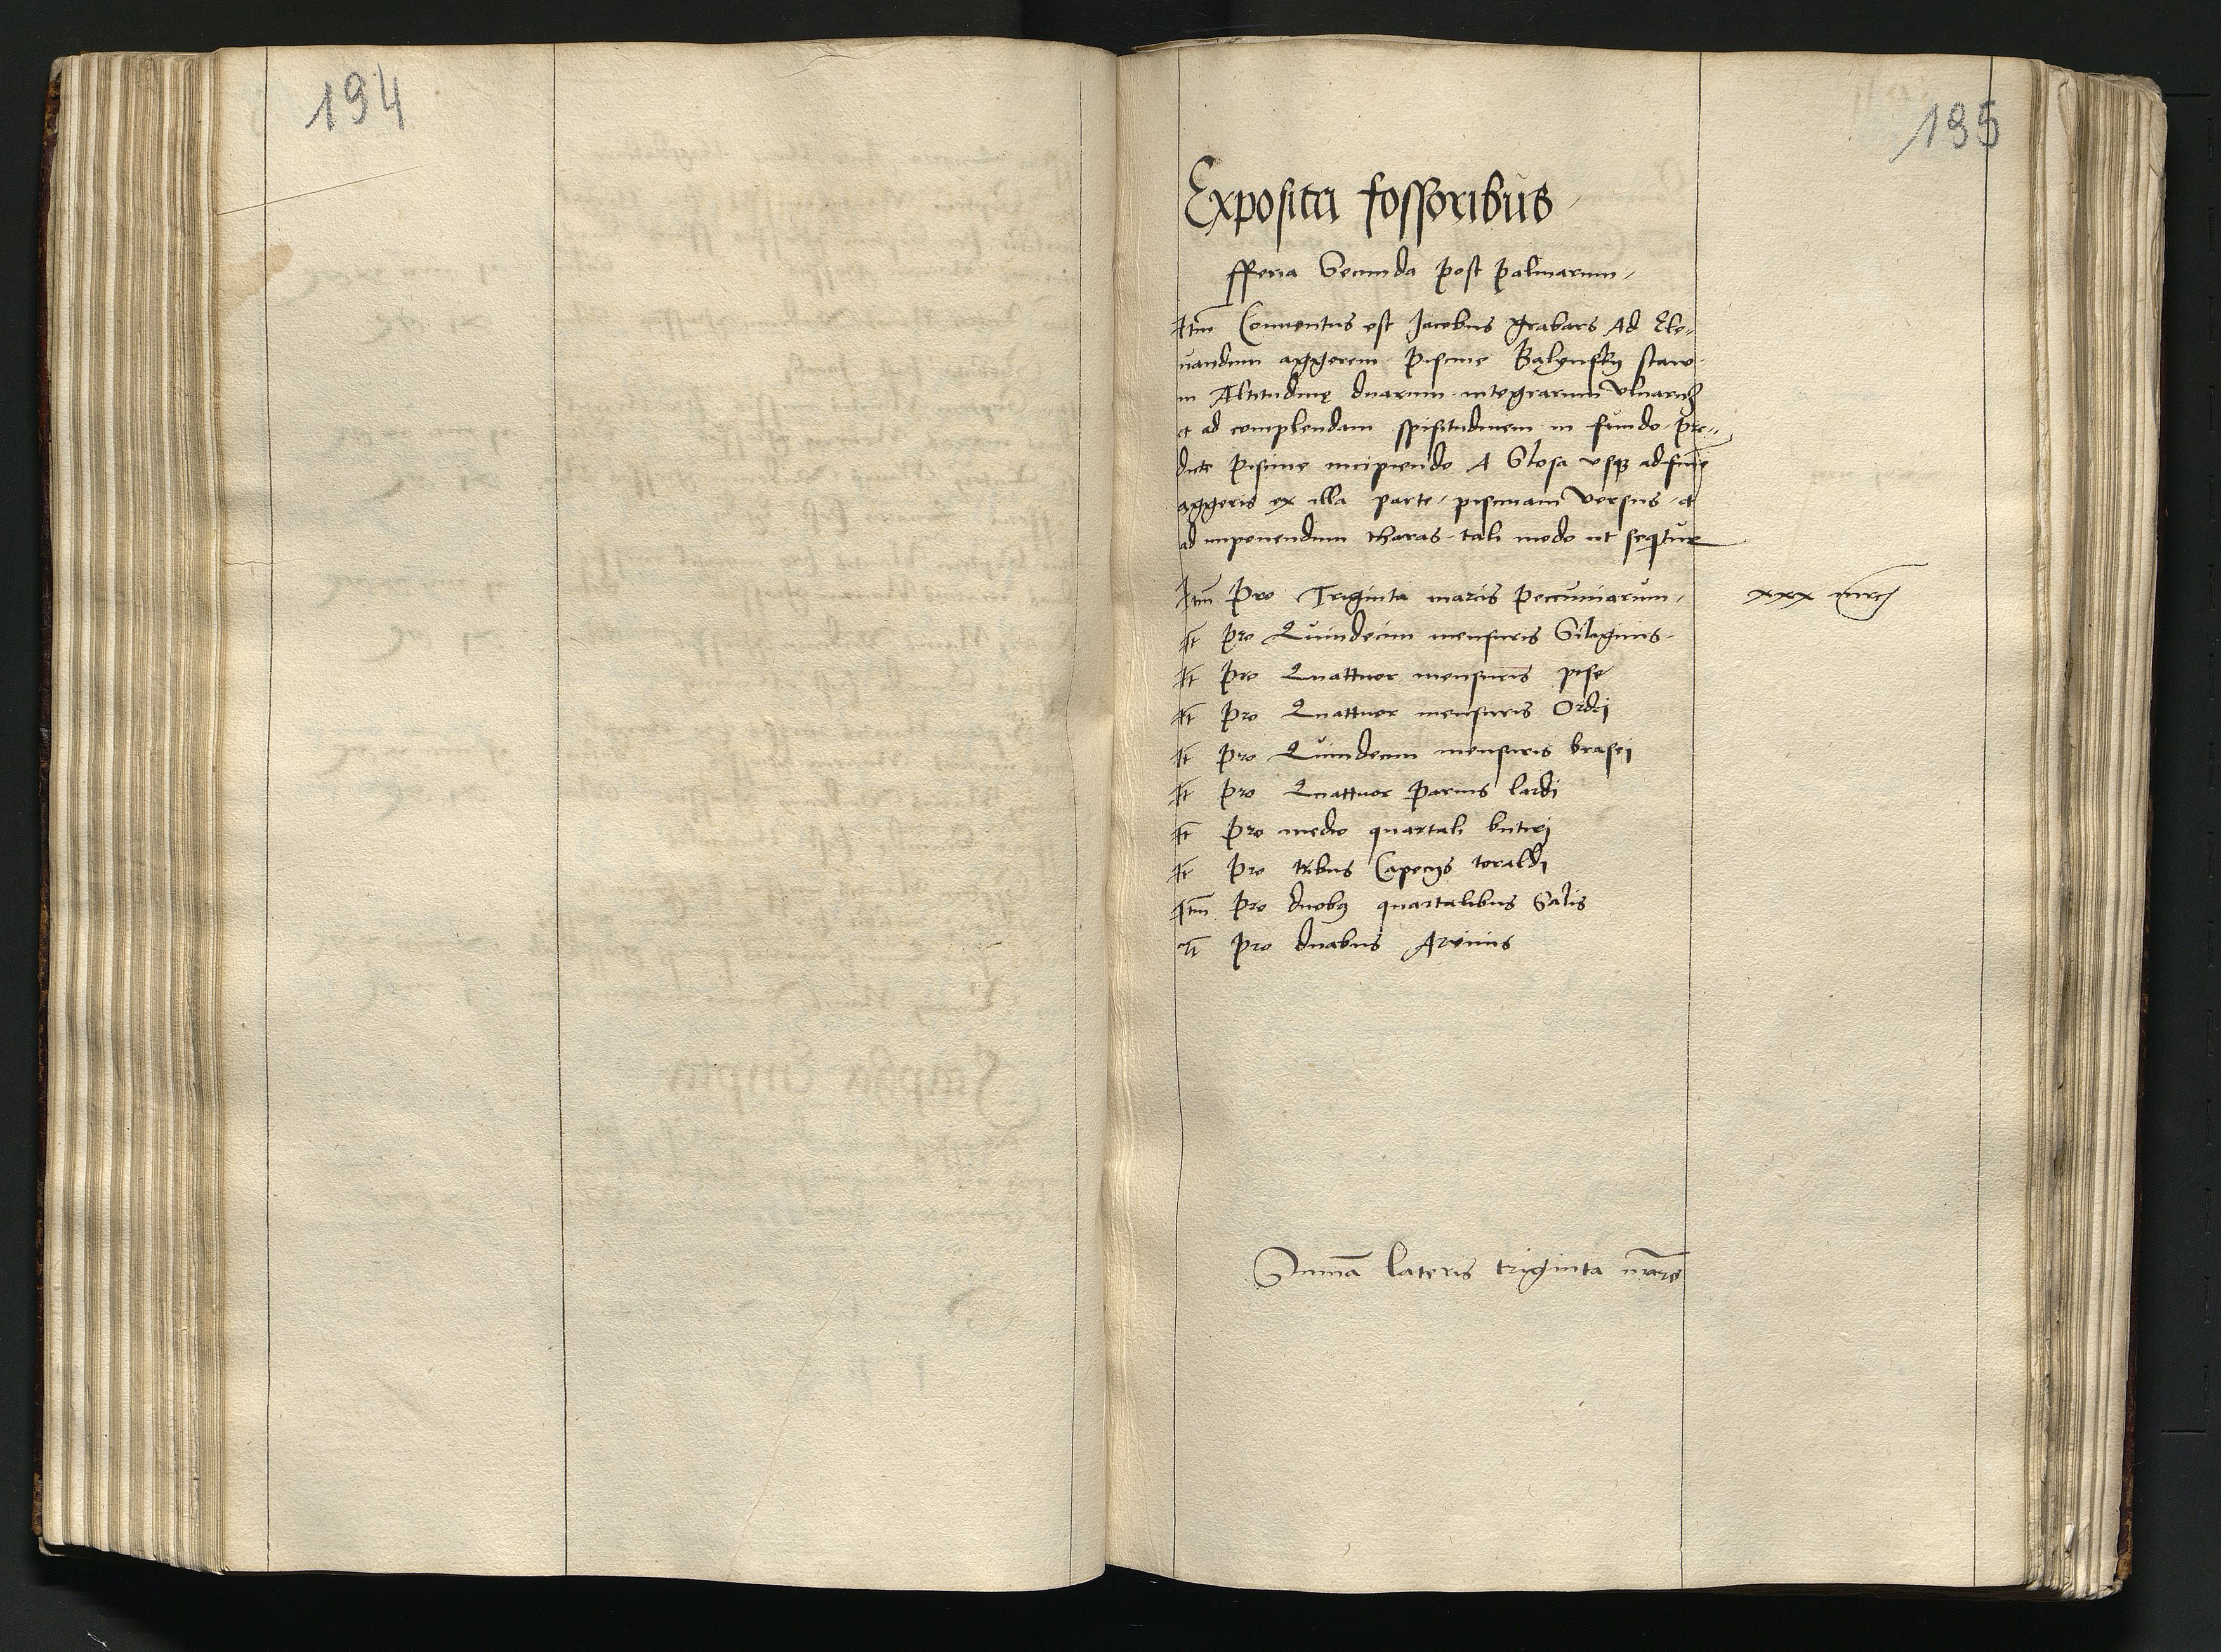 194
195
Exposita fossoribus
fferia Secunda post palmarum
Itm Conuentus est Jacobus grabars Ad Ele„
uandum aggerem piscine Balynsky staw
in Altitudinę duarum integrarum vlnarum
et ad complendam spisitudinem in fundo pre„
dicte piscine incipiendo A Stosa vsq3 ad finē
aggeris ex illa parte piscinam versus et
ad imponendum tharas tali modo ut seqtur
Itm Pro Triginta marcis peccuniarum xxx mrc
It pro Quindecim mensuris Siliginis
It pro Quattuor mensuris pise
It pro Quattuor mensuris Ordei
It pro Quindecim mensuris brasei
It pro Quattuor Parnis lardi
It pro medio quartali butirj
It pro tribus Capecijs
Itm pro duobus quartalibus Salis
It pro duabus Arvinis
Summa lateris triginta marc